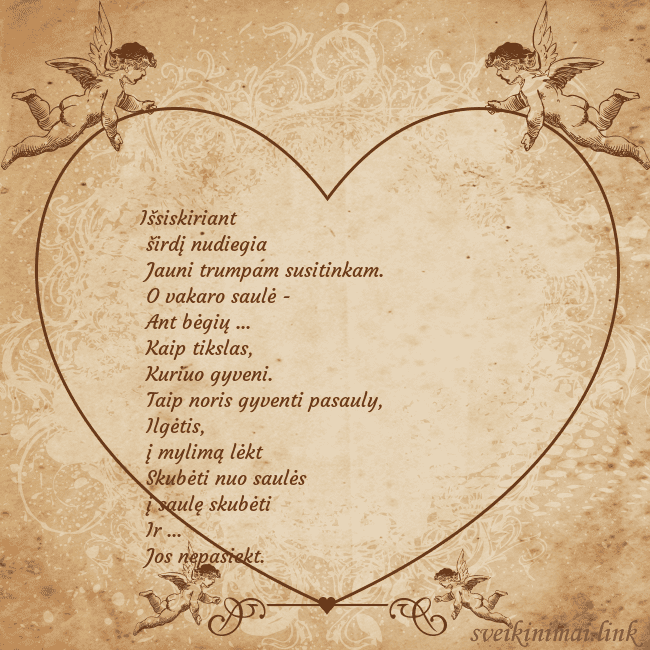 Išsiskiriant
širdį nudiegia
Jauni trumpam susitinkam.
O vakaro saulė -
Ant bėgių ...
Kaip tikslas,
Kuriuo gyveni.
Taip noris gyventi pasauly,
Ilgėtis,
į mylimą lėkt
Skubėti nuo saulės
į saulę skubėti
Ir ...
Jos nepasiekt.
sveikinimai.link